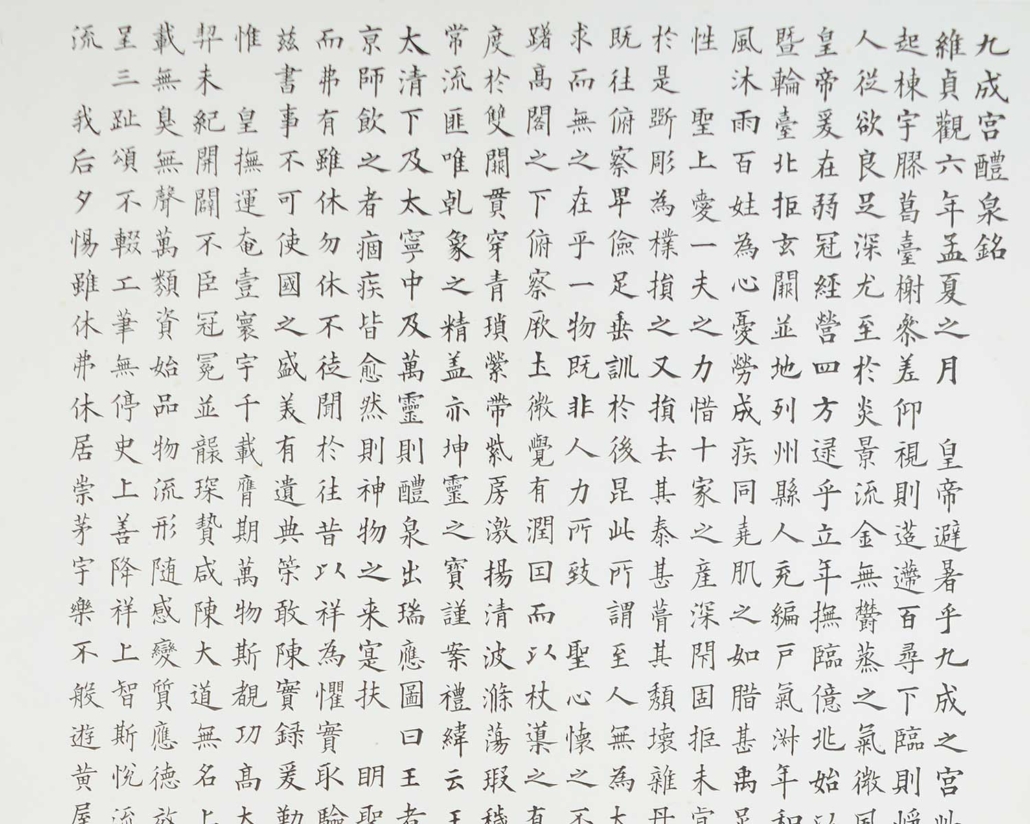 九成宮醴泉銘
維貞觀六年孟夏之月 皇帝避暑乎九成之宮此
起棟宇膠葛臺榭參差仰視則迢遰百尋下臨則崢
人從欲良足深尤至於炎景流金無鬱蒸之氣微風
皇帝爰在弱冠經營四方逮乎立年撫臨億兆始以
暨輪臺北拒玄闕並地列州縣人充編戶氣淑年和
風沐雨百姓為心憂勞成疾同堯肌之如腊甚禹足
性 聖上愛一夫之力惜十家之產深閇固拒未肯
於是斲彫為樸損之又損去其泰甚葺其頹壞雜丹
既往俯察卑儉足垂訓於後昆此所謂至人無為大
求而無之在乎一物既非人力所致 聖心懷之不
躇高閣之下俯察厥土微覺有潤因而以杖導之有
度於雙闕貫穿青瑣縈帶紫房激揚清波滌蕩瑕穢
常流匪唯乹象之精盖亦坤靈之寶謹案禮緯云王
太清下及太寧中及萬靈則醴泉出瑞應圖曰王者
京師飲之者痼疾皆愈然則神物之来寔扶 明聖
而弗有雖休勿休不徒聞於往昔以祥為懼實取驗
兹書事不可使國之盛美有遺典筞敢陳實録爰勤
惟 皇撫運奄壹寰宇千載膺期萬物斯覩功高大
羿未紀開闢不臣冠冕並襲琛贄咸陳大道無名上
載無臭無聲萬類資始品物流形随感變質應德放
呈三趾頌不輟工筆無停史上善降祥上智斯悅流
流 我后夕惕雖休弗休居崇茅宇樂不般遊黄屋